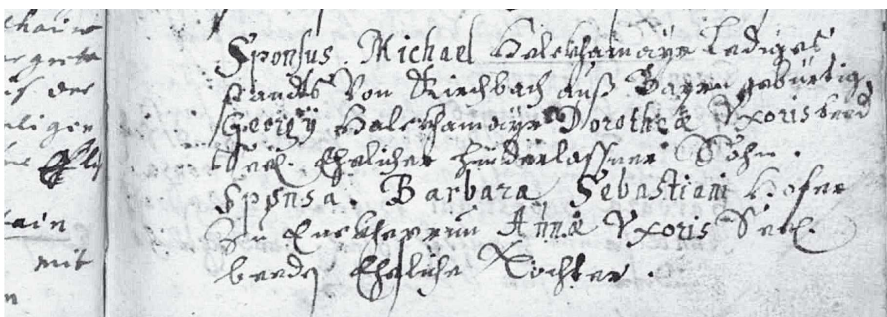 Sponsus. Michael Halekhamayr Lediges
standts Von Kirchbach auß Bayrn gebürtig,
Georgÿ Halekhamayr Dorotheæ Vxoris beed
Seel. Ehelicher hinderlassner Sohn.
Sponsa. Barbara Sebastiani Hofer
Zu Annæ Vxoris Seel.
beeder Eheliche Tochter.
hain
mit